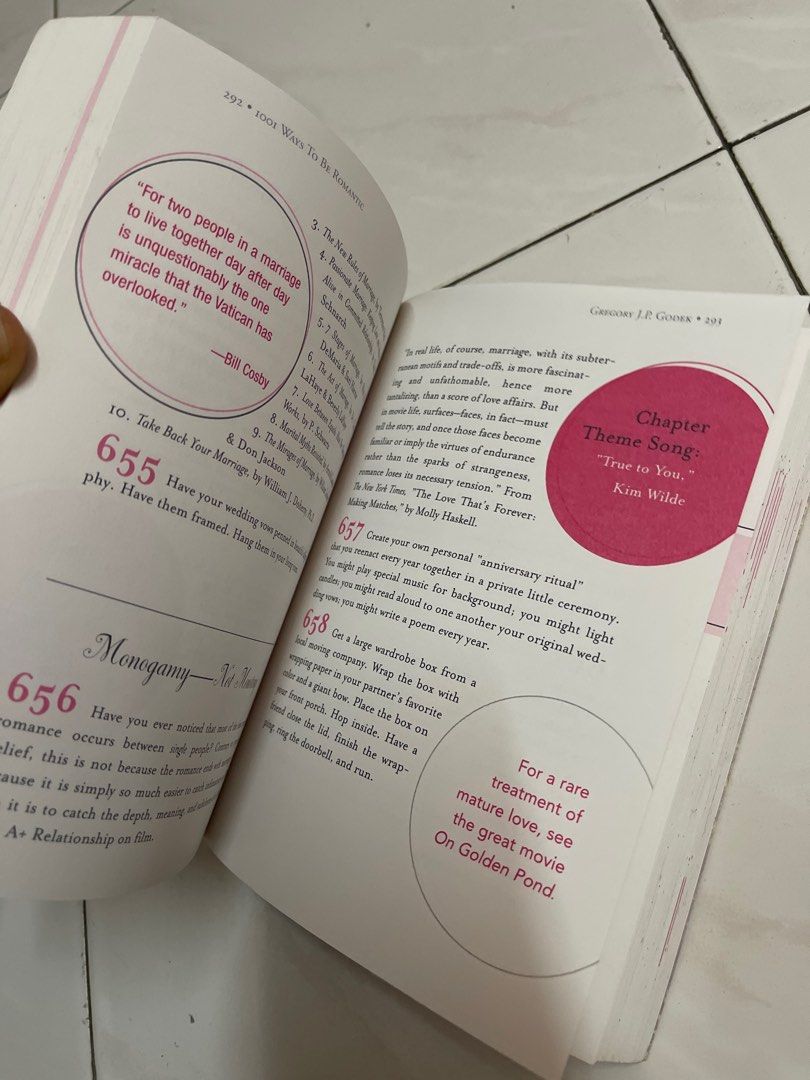 292 • 1001 Ways To Be Romantic
"For two people in a marriage
to live together day after day
is unquestionably the one
miracle that the Vatican has
overlooked."
—Bill Cosby
3. The New Rules of Marriage, by
4. Passionate Marriage:
Alive in Committed
Schnarch
5. 7 Stages of Marriage,
DeMaria &
6. The Act of Marriage,
LaHaye & Beverly LaHaye
7. Love Between Equals:
Works, by P. Schwartz
8. Marital Myths
9. The Mirages of Marriage, by William
& Don Jackson
10. Take Back Your Marriage, by William J. Doherty,
655 Have your wedding vows penned in
phy. Have them framed. Hang them in your
Monogamy—Not
656 Have you ever noticed that most of
romance occurs between single people?
elief, this is not because the romance ends
ause it is simply so much easier to catch
it is to catch the depth, meaning, and
A+ Relationship on film.
Gregory J.P. Godek • 293
"In real life, of course, marriage, with its subter-
ranean motifs and trade-offs, is more fascinat-
ing and unfathomable, hence more
tantalizing, than a score of love affairs. But
in movie life, surfaces—faces, in fact—must
tell the story, and once those faces become
familiar or imply the virtues of endurance
rather than the sparks of strangeness,
romance loses its necessary tension." From
The New York Times, "The Love That's Forever:
Making Matches," by Molly Haskell.
Chapter
Theme Song:
"True to You,"
Kim Wilde
657 Create your own personal "anniversary ritual"
that you reenact every year together in a private little ceremony.
You might play special music for background; you might light
candles; you might read aloud to one another your original wed-
ding vows; you might write a poem every year.
658 Get a large wardrobe box from a
local moving company. Wrap the box with
wrapping paper in your partner's favorite
color and a giant bow. Place the box on
your front porch. Hop inside. Have a
friend close the lid, finish the wrap-
ping, ring the doorbell, and run.
For a rare
treatment of
mature love, see
the great movie
On Golden Pond.